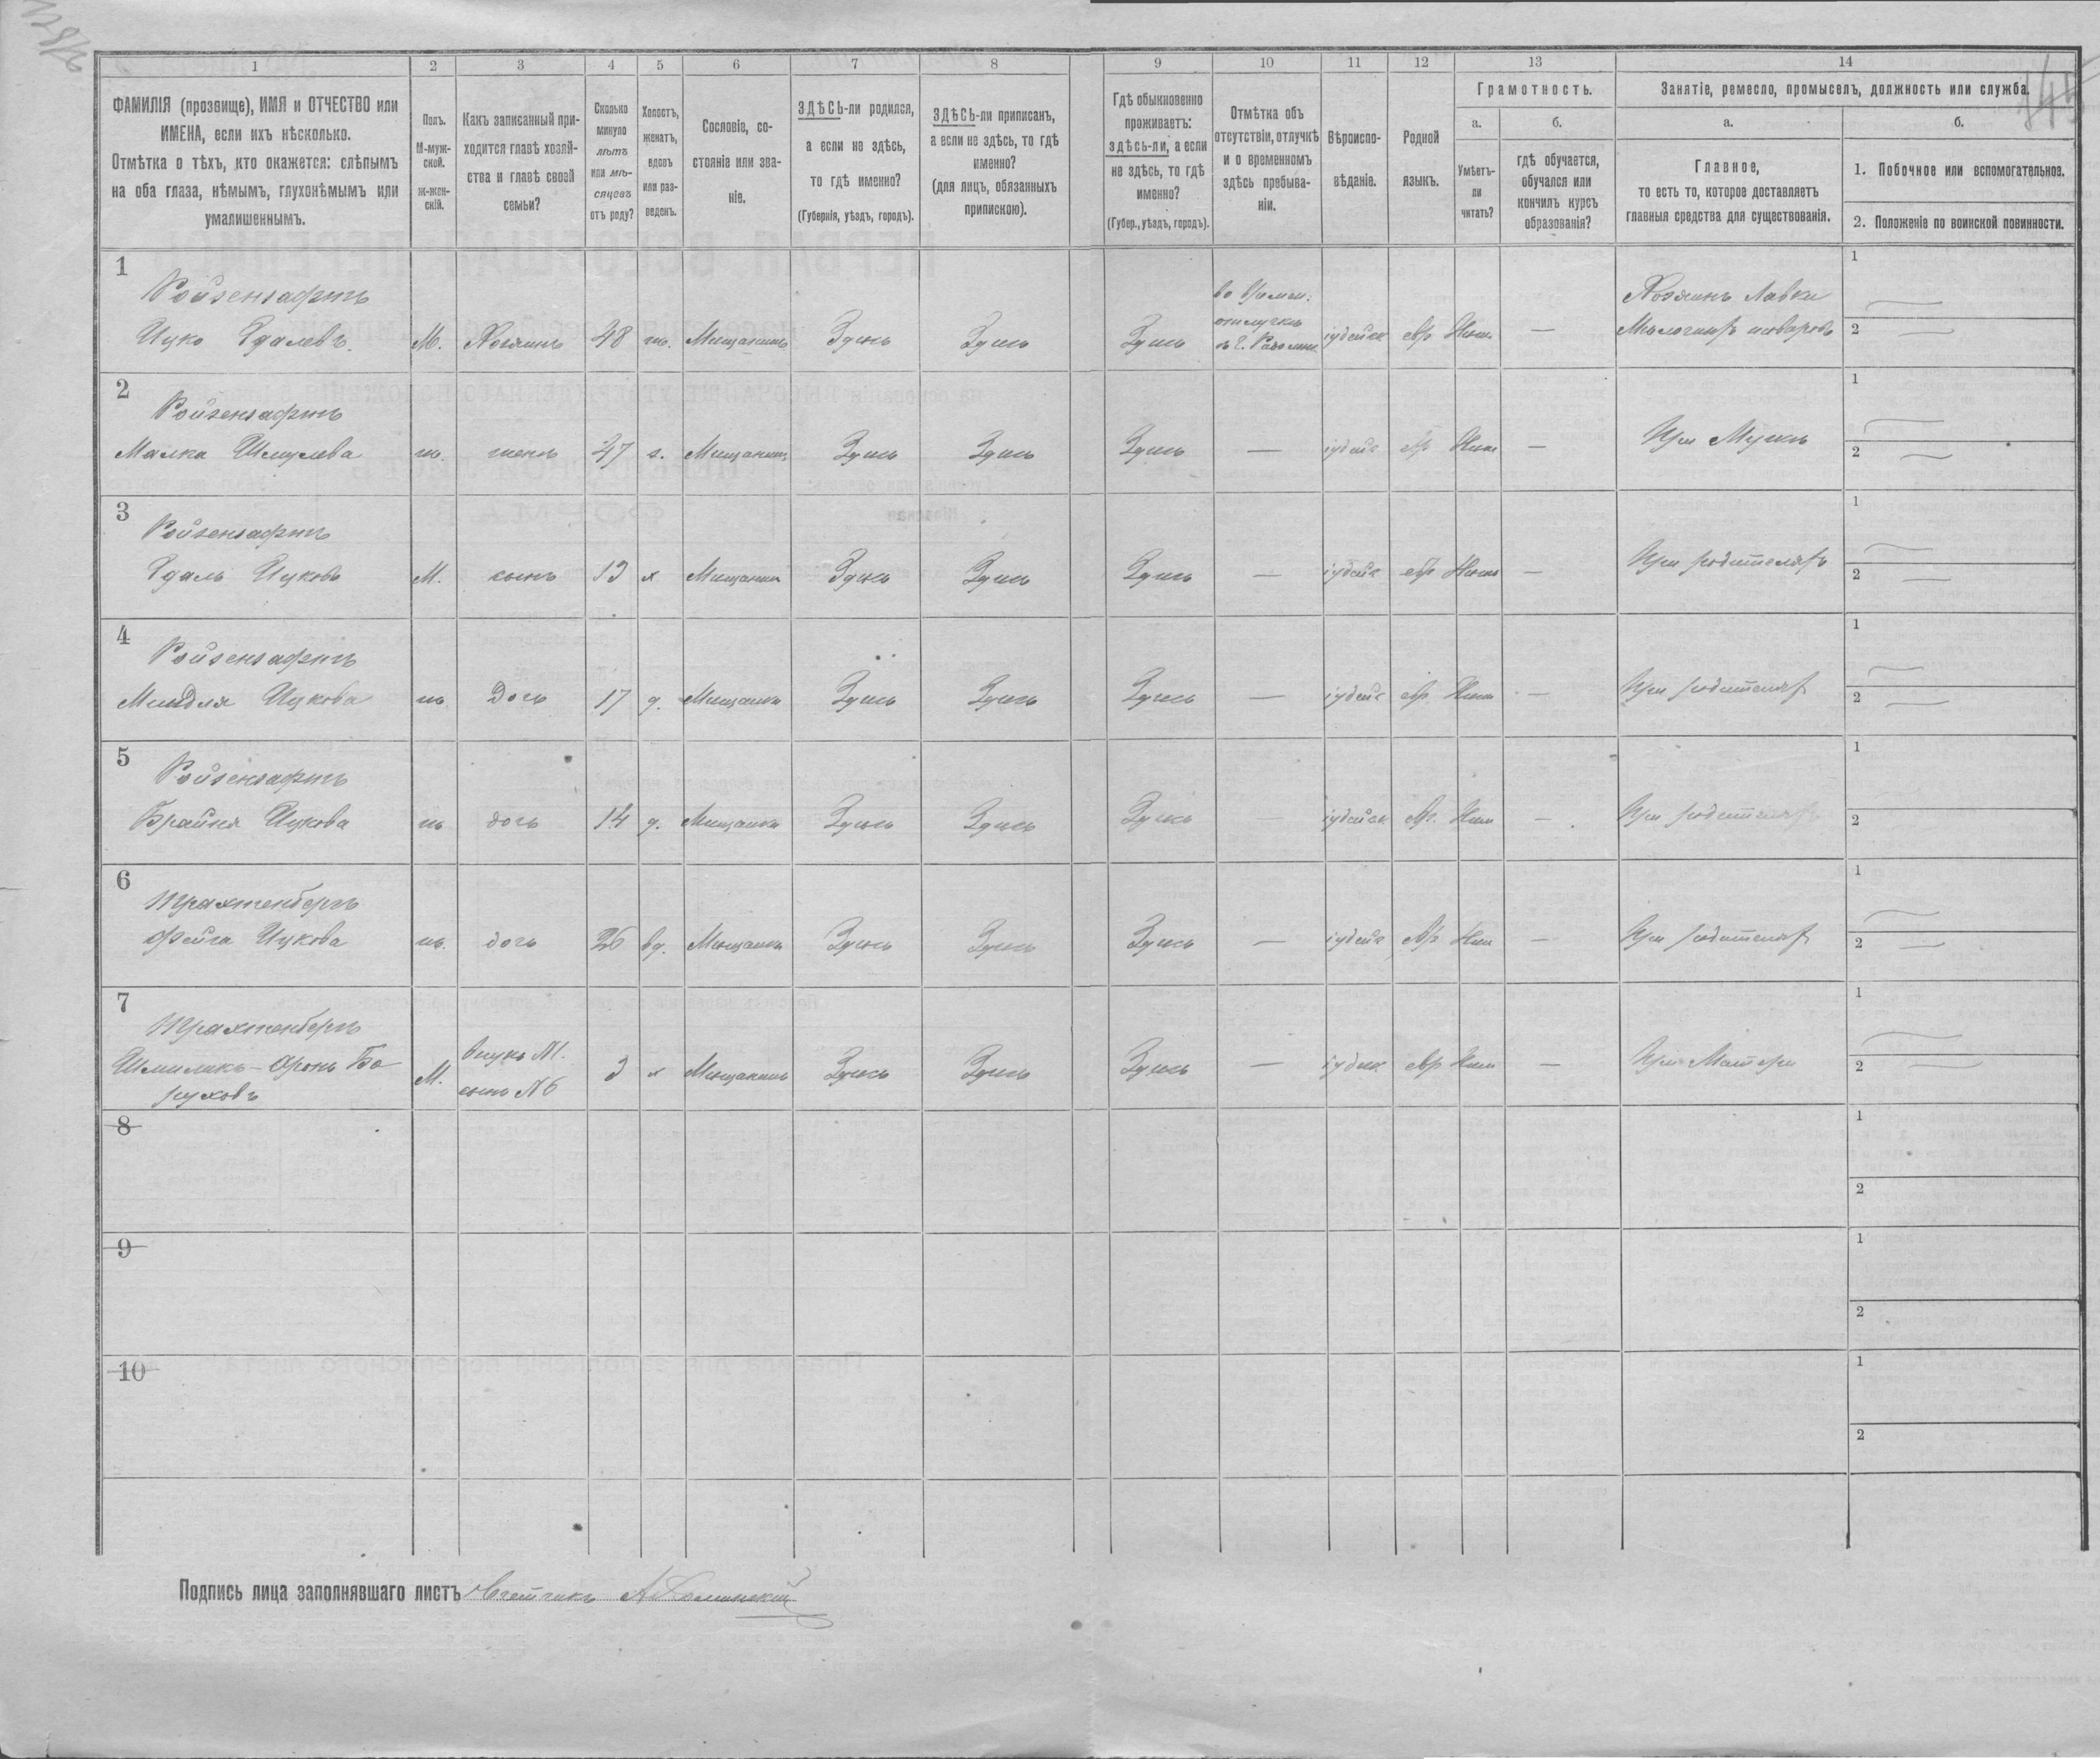 1 2 3 4 5 6 7 8 9 10 11 12 13 14
ФАМИЛІЯ (прозвище), ИМЯ и ОТЧЕСТВО или
ИМЕНА, если ихъ нѣсколько.
Отмѣтка о тѣхъ, кто окажется: слѣпымъ
на оба глаза, нѣмымъ, глухонѣмымъ или
умалишеннымъ.
Полъ.
М-муж-
ской.
ж-жен-
скій.
Какъ записанный при-
ходится главѣ хозяй-
ства и главѣ своей
семьи?
Сколько
минуло
лѣтъ
или мѣ-
сяцевъ
отъ роду?
Холостъ,
женатъ,
вдовъ
или раз-
веденъ.
Сословіе, со-
стояніе или зва-
ніе.
ЗДѢСЬ-ли родился,
а если не здѣсь,
то гдѣ именно?
(Губернія, уѣздъ, городъ).
ЗДѢСЬ-ли приписанъ,
а если не здѣсь, то гдѣ
именно?
(для лицъ, обязанныхъ
припискою).
Гдѣ обыкновенно
проживаетъ:
здѣсь-ли, а если
не здѣсь, то гдѣ
именно?
(Губер., уѣздъ, городъ).
Отмѣтка объ
отсутствіи, отлучкѣ
и о временномъ
здѣсь пребыва-
ніи.
Вѣроиспо-
вѣданіе.
Родной
языкъ.
Грамотность.
а.
Умѣетъ-
ли
читать?
б.
гдѣ обучается,
обучался или
кончилъ курсъ
образованія?
Занятіе, ремесло, промыселъ, должность или служба.
а.
Главное,
то есть то, которое доставляетъ
главныя средства для существованія.
б.
1. Побочное или вспомогательное.
2. Положеніе по воинской повинности.
1
Ройзензафтъ
Ицко Эдалевъ. М. Хозяинъ 48 ж. Мещанинъ Здѣсь Здѣсь Здѣсь
іудейск евр Нѣтъ —
Хозяинъ Лавки
1
2
2
Ройзензафтъ
Малка Шмулева ж. жена 47 з. Мещанка Здѣсь Здѣсь Здѣсь — іудейс евр Нѣтъ — При Мужѣ
1
2
3
Ройзензафтъ
Эдаль Ицковъ М. сынъ 13 х Мещанин Здѣсь Здѣсь Здѣсь — іудейс евр Нѣтъ — При родителяхъ
1
2
4
Ройзензафтъ
Миндля Ицкова ж Дочь 17 д. Мещанка Здѣсь Здѣсь Здѣсь — іудейс евр Нѣтъ — При родителях
1
2
5
Ройзензафтъ
Брайня Ицкова ж дочь 14 д. Мещанка Здѣсь Здѣсь Здѣсь іудейск евр. Нѣтъ — При родителях
1
2
6
Трахтенбергъ
Фейга Ицкова ж. дочь 26 вд. Мещанка Здѣсь Здѣсь Здѣсь — іудейс евр Нѣтъ — При родителях
1
2
7
Трахтенбергъ
Шмиликъ-Аронъ Бо
руховъ
М.
внукъ №1.
сынъ №6
3 х Мещанинъ Здѣсь Здѣсь Здѣсь — іудейск евр Нѣтъ — При Матери
1
2
8
1
2
9
1
2
10
1
2
Подпись лица заполнявшаго листъ Счетчикъ